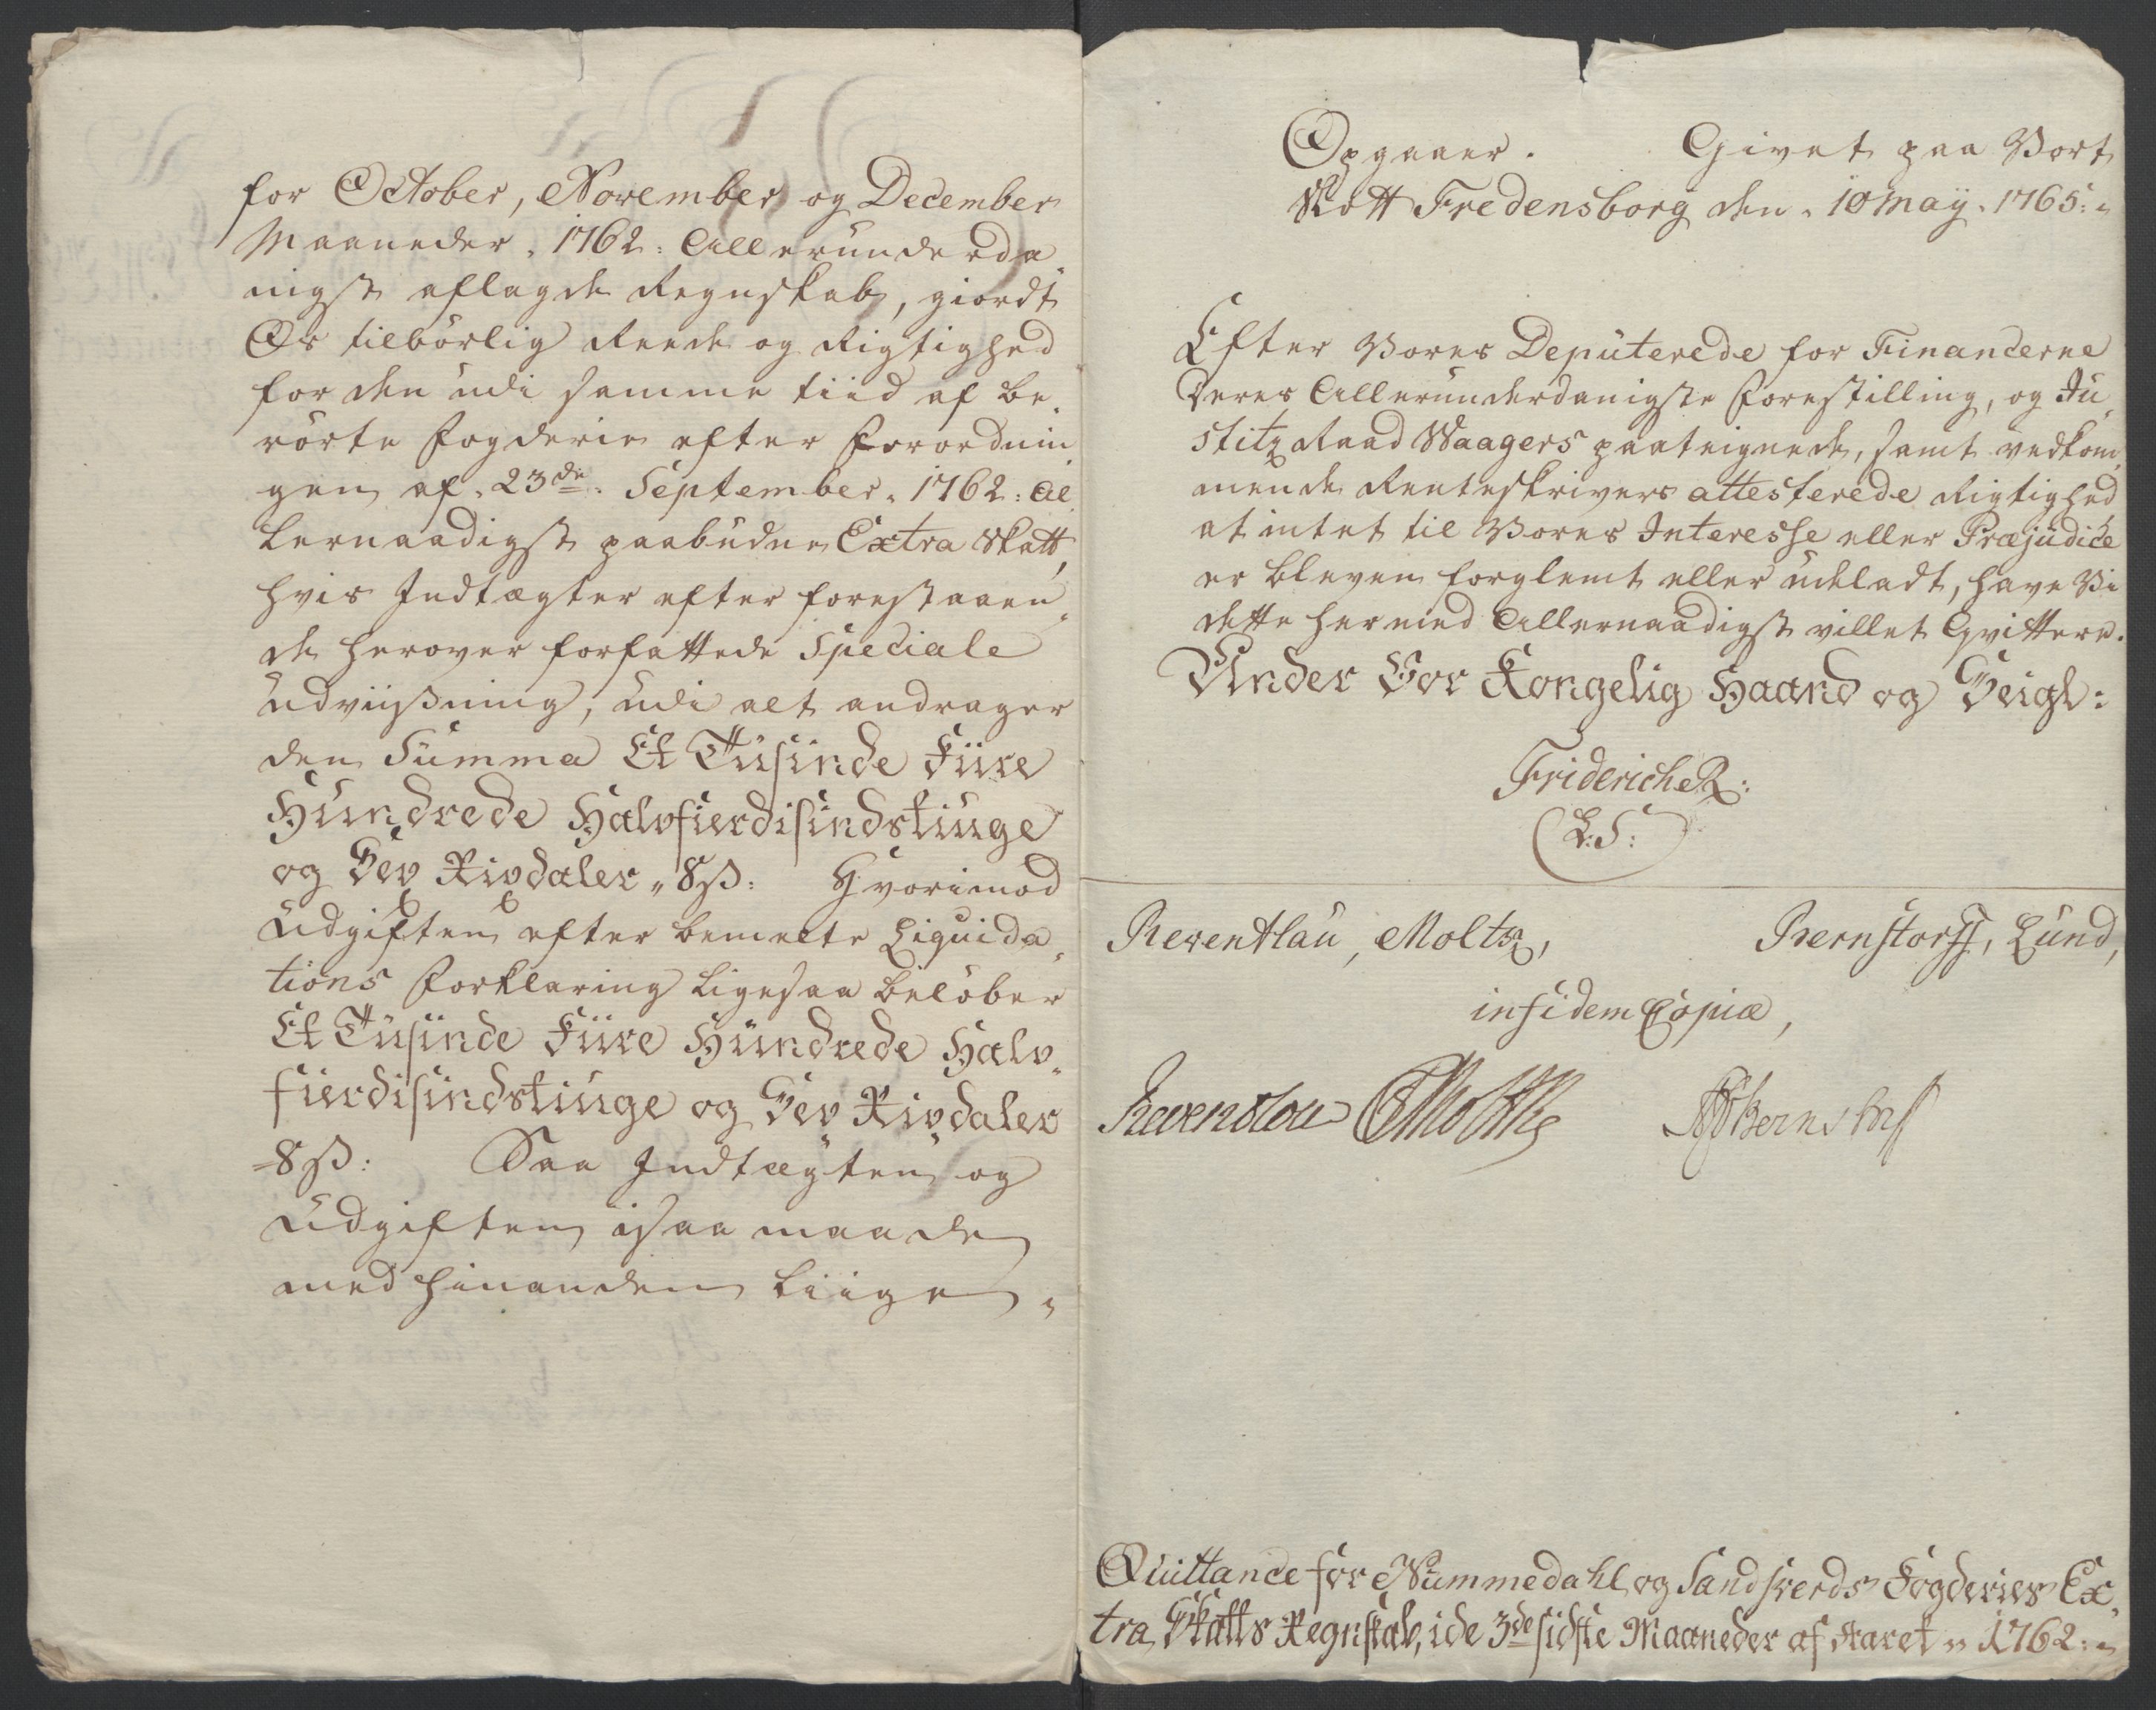 for October, November og December
Maaneder 1762: Allerunderda„
nigst aflagde Regnskab, giordt
Os tilbörlig Reede og Rigtighed
for den udi samme tiid af be„
rörte Fogderie efter Forordnin„
gen af 23de September 1762: Al„
lernaadigst paabudne Extra Skatt,
hvis Indtægter efter forestaaen„
de herover forfattede Speciale
Udviisning, udi alt andrager
den Summa Et Tusinde Fiire
Hundrede Halvfierdisindstiuge
og Sex Rixdaler „ 8 ß: Hvorimod
Udgiften efter bemelte Liquida„
tions Forklaring ligesaa belöber
Et Tusinde Fiire Hundrede Halv„
fierdisindstiuge og Sex Rixdaler
8 ß: Saa Indtægten og
Udgiften isaa maade
med hinanden liige
Opgaaer. Givet paa Vort
Slott Fredensborg den 10 May 1765:
Efter Vores Deputerede for Financerne
Deres Allerunderdanigste Forestilling, og Ju„
stitz Raad Waagers paateignede, samt vedkom„
mende Renteskrivers attesterede Rigtighed,
at intet til Vores Interesse eller Præjudice
er bleven forglemt eller udeladt, have Vi
dette hermed Allernaadigst villet Qvittere.
Under Vor Kongelig Haand og Seigl:
Friderich R:
(L.S:)
Reventlau, Moltz, Bernstorff, Lund,
in fidem Copiæ,
Reventlou Moltke Bernstorff
Quittance for Nummedahl og Sandsverds Fogderies Ex„
tra Skatts Regnskab, i de 3de sidste Maaneder af Aaret „ 1762: